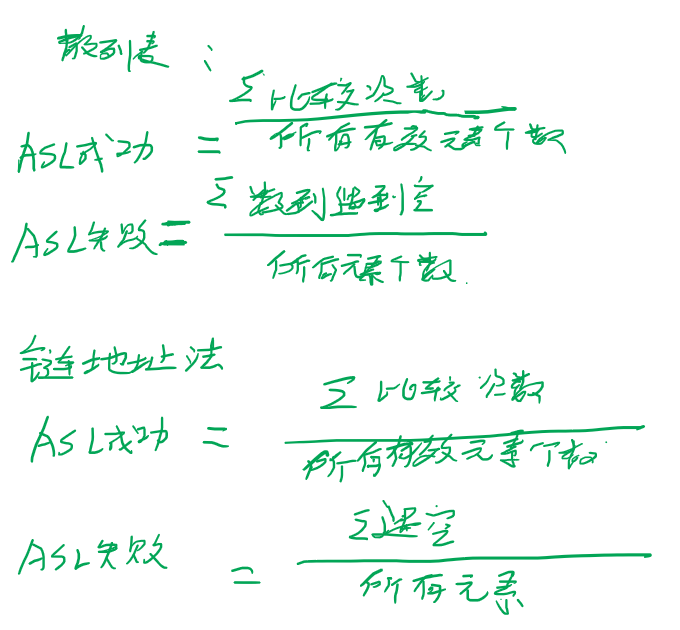 散列表：
ASL成功 = Σ比较次数 / 所有有效元素个数
ASL失败 = Σ数到遇到空 / 所有元素个数.
链地址法
ASL成功 = Σ比较次数 / 所有有效元素个数
ASL失败 = Σ遇空 / 所有元素